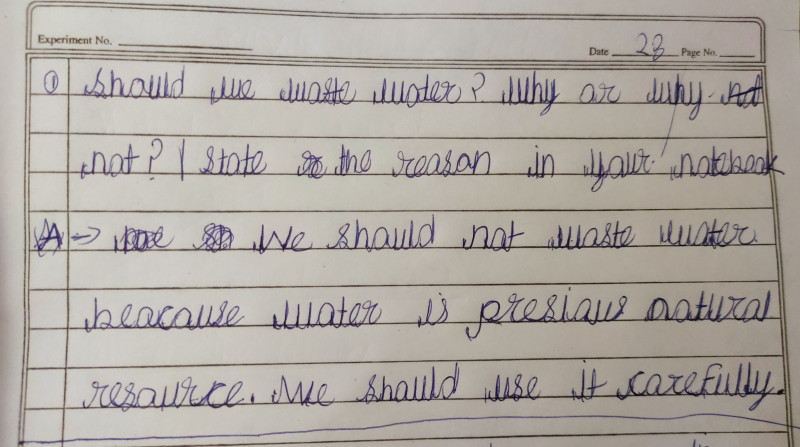 Experiment No.
Date 28 Page No.
① Should we waste water? Why or why not
not? | State the reason in your notebook
A → We should not waste water
beacause water is presious natural
resource. We should use it carefully.